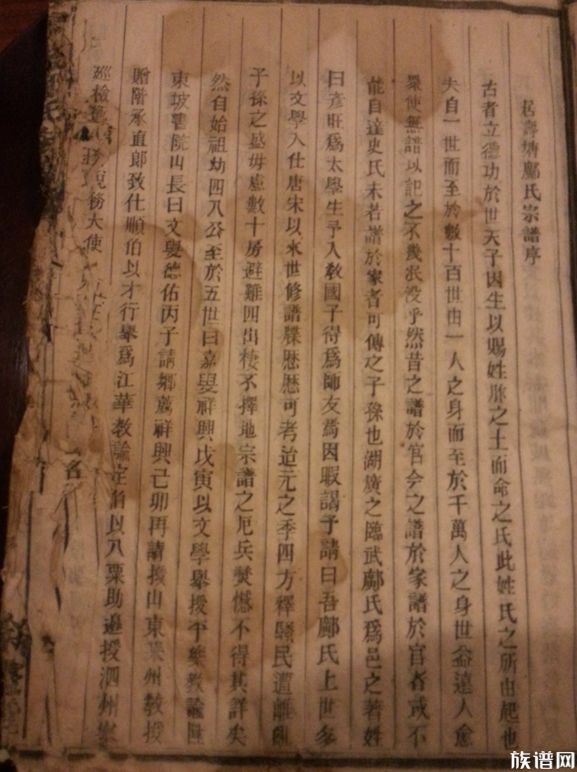 居壽塘鄺氏宗譜序
古者立德功於世天子因生以賜姓胙之土而命之氏此姓氏之所由起也
夫自一世而至於數十百世由一人之身而至於千萬人之身世益遠人愈
衆使無譜以記之不幾泯没乎然昔之譜於官今之譜於家譜於官者或不
能自達史氏未若譜於家者可傳之子孫也湖廣之臨武鄺氏爲邑之著姓
曰彦旺爲太學生早入教國子得爲師友焉因暇謁予請曰吾鄺氏上世多
以文學入仕唐宋以來世修譜牒歴歴可考迨元之季四方釋騷民遭離亂
子孫之盛毋慮數十房避難四出棲不擇地宗譜之厄兵焚憾不得其詳矣
然自始祖幼四八公至於五世曰嘉興祥興戊寅以文學舉授平樂教諭陞
東坡書院山長曰文興德佑丙子請鄉薦祥興己卯再請授山東萊州教授
贈階承直郎致仕順伯以才行舉爲江華教諭定伯以入粟助邊授泗州
巡檢 務大使
名
族谱网